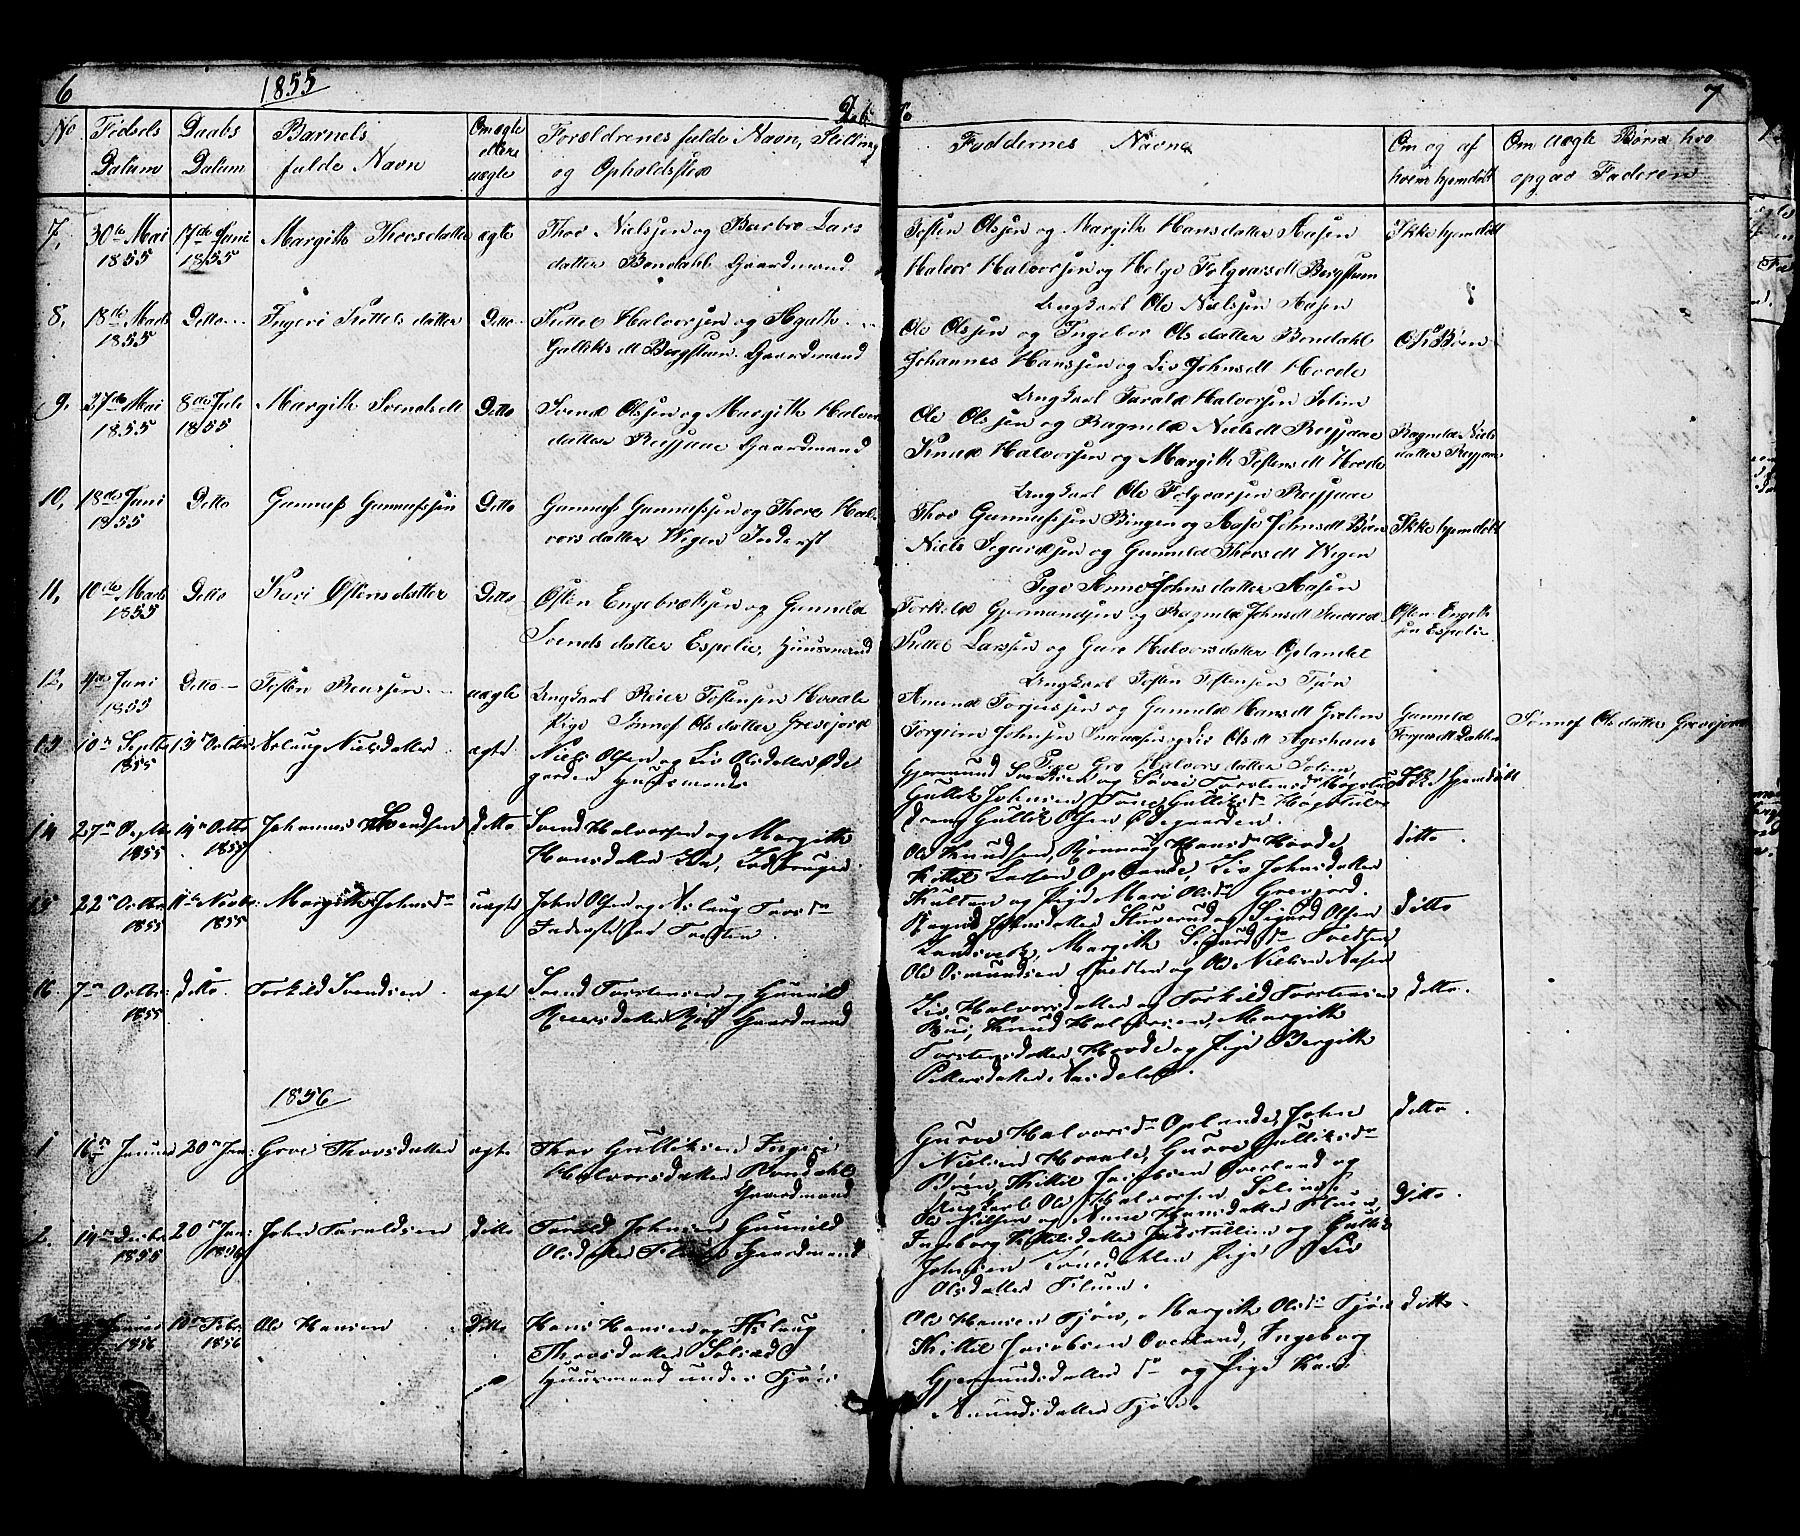 6
1855
7
No
Fødsels Datum
Daabs Datum
Barnets fulde Navn
Om ægte eller uægte
Forældrenes fulde Navn, Stilling og Opholdsted
Faddernes Navne
Om og af hvem hjemdøbt
Om uægte Børn hvo opgav Faderen
7, 30te Mai 1855
17de Juni 1855
Margith Thorsdatter
ægte
Thor Nielssen og Barbro Lars
datter Bøndahl Gaardmand
Testen Olssen og Margith Hansdatter Aasen
Halvor Halvorssen og Helge Folqvarsdt Bergstuen
Ungkarl Ole Nielssen Aasen
Ikke hjemdøbt
8, 18de Marts 1855
Ditto
Ingeri Kittelsdatter
Ditto
Kittel Halvorssen og Agath
Gulliksdt Bergstuen Gaardmand
Ole Olssen og Ingebor Olsdatter Bøndahl
Johannes Hanssen og Liv Johnsdt Hovde
Ungkarl Tarald Halvorssen Solim
9, 27de Mai 1855
8de Juli 1855
Margith Svendsdt
Ditto
Svend Olssen og Margith Halvors
datter Reisjaae Gaardmand
Ole Olssen og Ragnild Nielsdt Reisjaae
Knud Halvorssen og Margith Testensdt Hovde
Ungkarl Ole Folqvarssen Reisjaae
Ragnild Niels
datter Reisjaae
10, 18de Juni 1855
Ditto
Gunnuf Gunnufssen
Ditto
Gunnuf Gunnufssen og Thore Hal-
vorsdatter Wigen Inderst
Thov Gunnufssen Bingen og Aase Johnsdt Bøen
Niels Sigurdssen og Gunnild Thorsdt Wigen
Pige Anne Johnsdatter Aasen
Ikke hjemdøbt
11, 10de Marts 1855
Ditto
Kari Østensdatter
Ditto
Østen Engebrætssen og Gunnild
Svendsdatter Espelie, Huusmand
Torkild Gjermundssen og Ragnild Johnsdt
Kittel Larssen og Guro Halvorsdatter Oplandet
Ungkarl Testen Testenssen Tjøn
Østen Engebr
sen Espelie
12, 4de Juni 1855
Ditto
Testen Reierssen
uægte
Ungkarl Reier Testenssen Hovde
Pige Sønnef Olsdatter Grevejord
Amund Torjussen og Gunnild Hansdt Grøtim
Torgrim Johnssen og Liv Olsdt Agerhaus
Pige Gro Halvorsdatter Solim
Gunnild
Sønnef Olsdatter Grevejord
13 10n Septbr 1855
13n Octbr
Aslaug Nielsdatter
ægte
Niels Olsen og Liv Olsdatter Øde
gaarden Huusmand
Gjermund Svendsen og
Gullik Johnsen, Tone Gulliksdr
Dreng Gullik Olsen Ødegaarden.
Ikke hjemdøbt
14 27n Septbr 1855
14n Octbr 1855
Johannes Svendsen
ditto
Svend Halvorsen og Margith
Hansdatter
Ole Knudsen, Rønnoug Hansdr Hovde,
Kittel Larsen Oplandet, Liv Johnsdatter
og Pige Mari Olsdr Grevjord.
ditto
15 22n Octbr 1855
11n Novbr 1855
Margith Johnsdr
uægte
John Olsen og Aslaug Torsdr
Ragnild Johnsdatter og Sigurd Olsen
Landsverk, Margith Sigurdsdr Tvedten
Ole Osmundsen Tvedten og Ole Nielsen Aasen
ditto
16 7n Octbr 1855
ditto
Torkild Svendsen
ægte
Svend Torstensen og Gunnild
Reiersdatter Gaardmand
Liv Halvorsdatter og Torkild Torstensen
Knud Halvorsen, Margith
Torstensdatter Hovde og Pige Bergith
Pettersdatter Aasdalen.
ditto
1856
1 16n Januar
20n Jan:
Groe Thorsdatter
ægte
Thor Gulliksen Ingeri
Halvorsdatter Bøndahl
Gaardmand
Guroe Halvorsdr Oplandet, John
Nielsen Hovde, Guroe Gulliksdr
Bøen, Kittel Jacobsen Overland og
Ungkarl Ole Halvorsen Solim
ditto
2. 14n Decbr 1855
20n Jan: 1856
John Taraldsen
ditto
Tarald Johnsen Gunnild
Olsdatter Gaardmand
Ole Nilsen og Anne Hansdatter Fluen
Ingeborg Kittelsdatter og Gullik
Johnsen Pige Liv
Olsdatter Fluen.
ditto
Januar 1856
10n Febr 1856
Ole Hansen
ditto
Hans Hansen og Aslaug
Thorsdatter
Huusmand under Tjøn
Ole Hansen Tjøn, Margith Olsdr Tjøn
Kittel Jacobsen Overland, Ingeborg
Gjermundsdatter do og Pige Kari
Amundsdatter Tjøn.
ditto